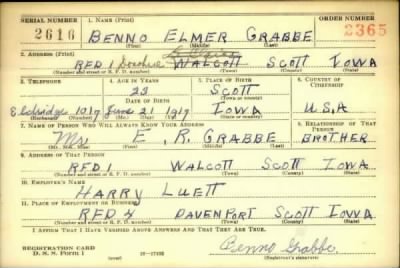 SERIAL NUMBER 1. NAME (Print) ORDER NUMBER
2616 BENNO ELMER GRABBE 2365
(First) (Middle) (Last)
2. ADDRESS (Print)
RFD 1 WALCOTT SCOTT IOWA
(Number and street or R. F. D. number) (Town) (County) (State)
3. TELEPHONE 4. AGE IN YEARS 5. PLACE OF BIRTH 6. COUNTRY OF CITIZENSHIP
23 SCOTT
DATE OF BIRTH (Town or county)
1017 June 21 1917 IOWA U.S.A
(Exchange) (Number) (Mo.) (Day) (Yr.) (State or country)
7. NAME OF PERSON WHO WILL ALWAYS KNOW YOUR ADDRESS 8. RELATIONSHIP OF THAT PERSON
Mr E. R. GRABBE BROTHER
(Mr., Mrs., Miss) (First) (Middle) (Last)
9. ADDRESS OF THAT PERSON
RFD 1 WALCOTT SCOTT IOWA
(Number and street or R. F. D. number) (Town) (County) (State)
10. EMPLOYER'S NAME
HARRY LUETT
11. PLACE OF EMPLOYMENT OR BUSINESS
RFD 4 DAVENPORT SCOTT IOWA
(Number and street or R. F. D. number) (Town) (County) (State)
I AFFIRM THAT I HAVE VERIFIED ABOVE ANSWERS AND THAT THEY ARE TRUE.
REGISTRATION CARD
D. S. S. Form 1 Benno Grabbe
(Registrant's signature)